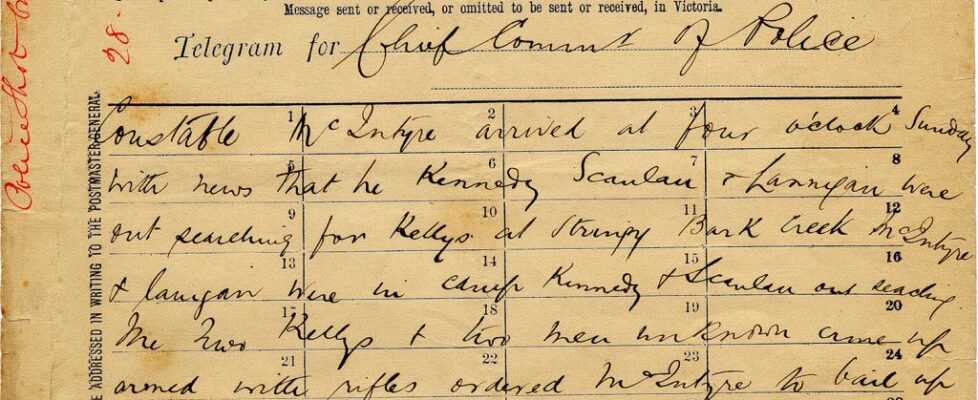 Message sent or received, or omitted to be sent or received, in Victoria.
28.
Telegram for Chief Commr of Police
ADDRESSED IN WRITING TO THE POSTMASTER GENERAL.
1 2 3 4
Constable McIntyre arrived at four o'clock Sunday
5 6 7 8
with news that he Kennedy Scanlan & Lannigan were
9 10 11 12
out searching for Kellys at Stringy Bark Creek McIntyre
13 14 15 16
& lanigan were in camp Kennedy & Scanlan out seaching
17 18 19 20
The two Kellys & two men unknown came up
21 22 23 24
armed with rifles ordered McIntyre to bail up